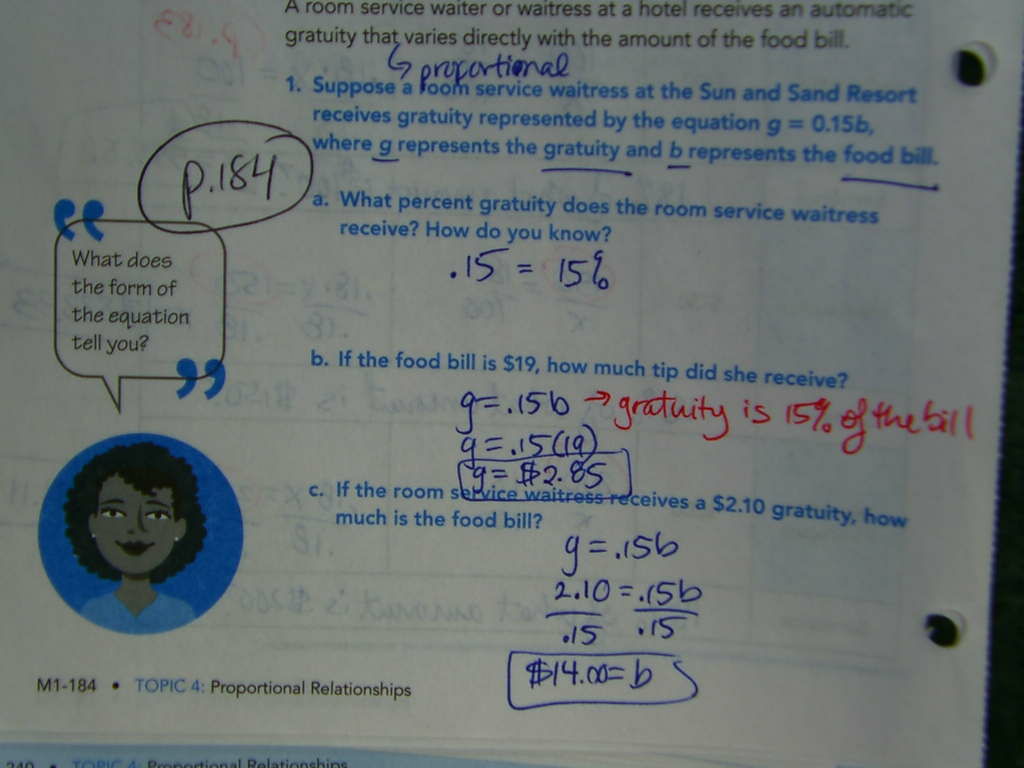 A room service waiter or waitress at a hotel receives an automatic
gratuity that varies directly with the amount of the food bill.
proportional
p.183
1. Suppose a room service waitress at the Sun and Sand Resort
receives gratuity represented by the equation g = 0.15b,
where g represents the gratuity and b represents the food bill.
p.184
a. What percent gratuity does the room service waitress
receive? How do you know?
.15 = 15%
What does
the form of
the equation
tell you?
b. If the food bill is $19, how much tip did she receive?
g = .15b → gratuity is 15% of the bill
g = .15(19)
g = $2.85
c. If the room service waitress receives a $2.10 gratuity, how
much is the food bill?
g = .15b
2.10 = .15b
.15 .15
$14.00 = b
M1-184 • TOPIC 4: Proportional Relationships
240 • TOPIC 4: Proportional Relationships